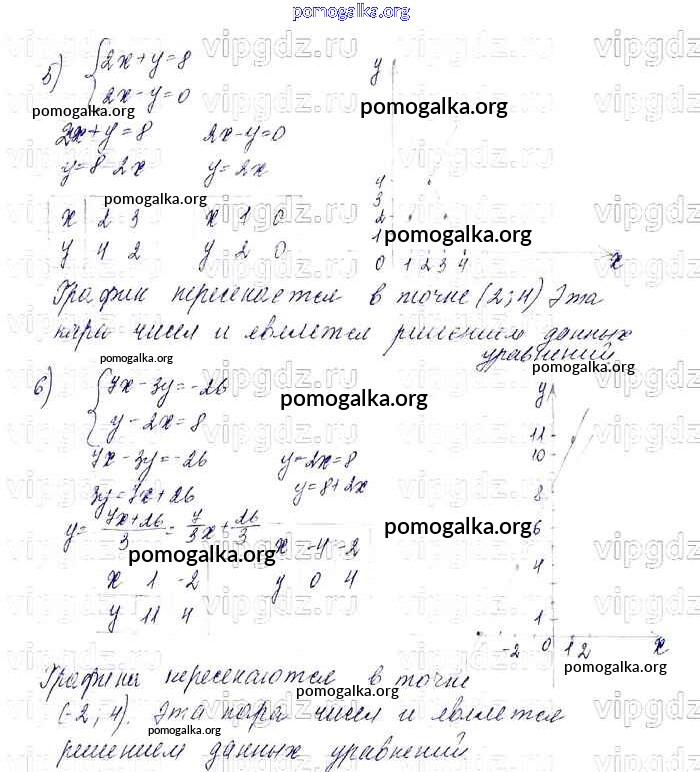 pomogalka.org
5) { 2x + y = 8
2x - y = 0
pomogalka.org
2x + y = 8 2x - y = 0
y = 8 - 2x y = 2x
pomogalka.org
x 2 3 x 1 0
y 4 2 y 2 0
y
4
3
2
1
0 1 2 3 4 x
pomogalka.org
pomogalka.org
График пересекается в точке (2; 4) Эта
пара чисел и является решением данных
уравнений
pomogalka.org
pomogalka.org
6) { 7x - 3y = -26
y - 2x = 8
pomogalka.org
7x - 3y = -26 y - 2x = 8
3y = 7x + 26 y = 8 + 2x
y = (7x + 26)/3 = 7/3 x + 26/3
pomogalka.org
pomogalka.org
x -4 -2
y 0 4
x 1 -2
y 11 4
y
11
10
8
6
4
1
-2 0 1 2 x
pomogalka.org
Графики пересекаются в точке
pomogalka.org
(-2; 4). Эта пара чисел и является
pomogalka.org
решением данных уравнений
vipgdz.ru